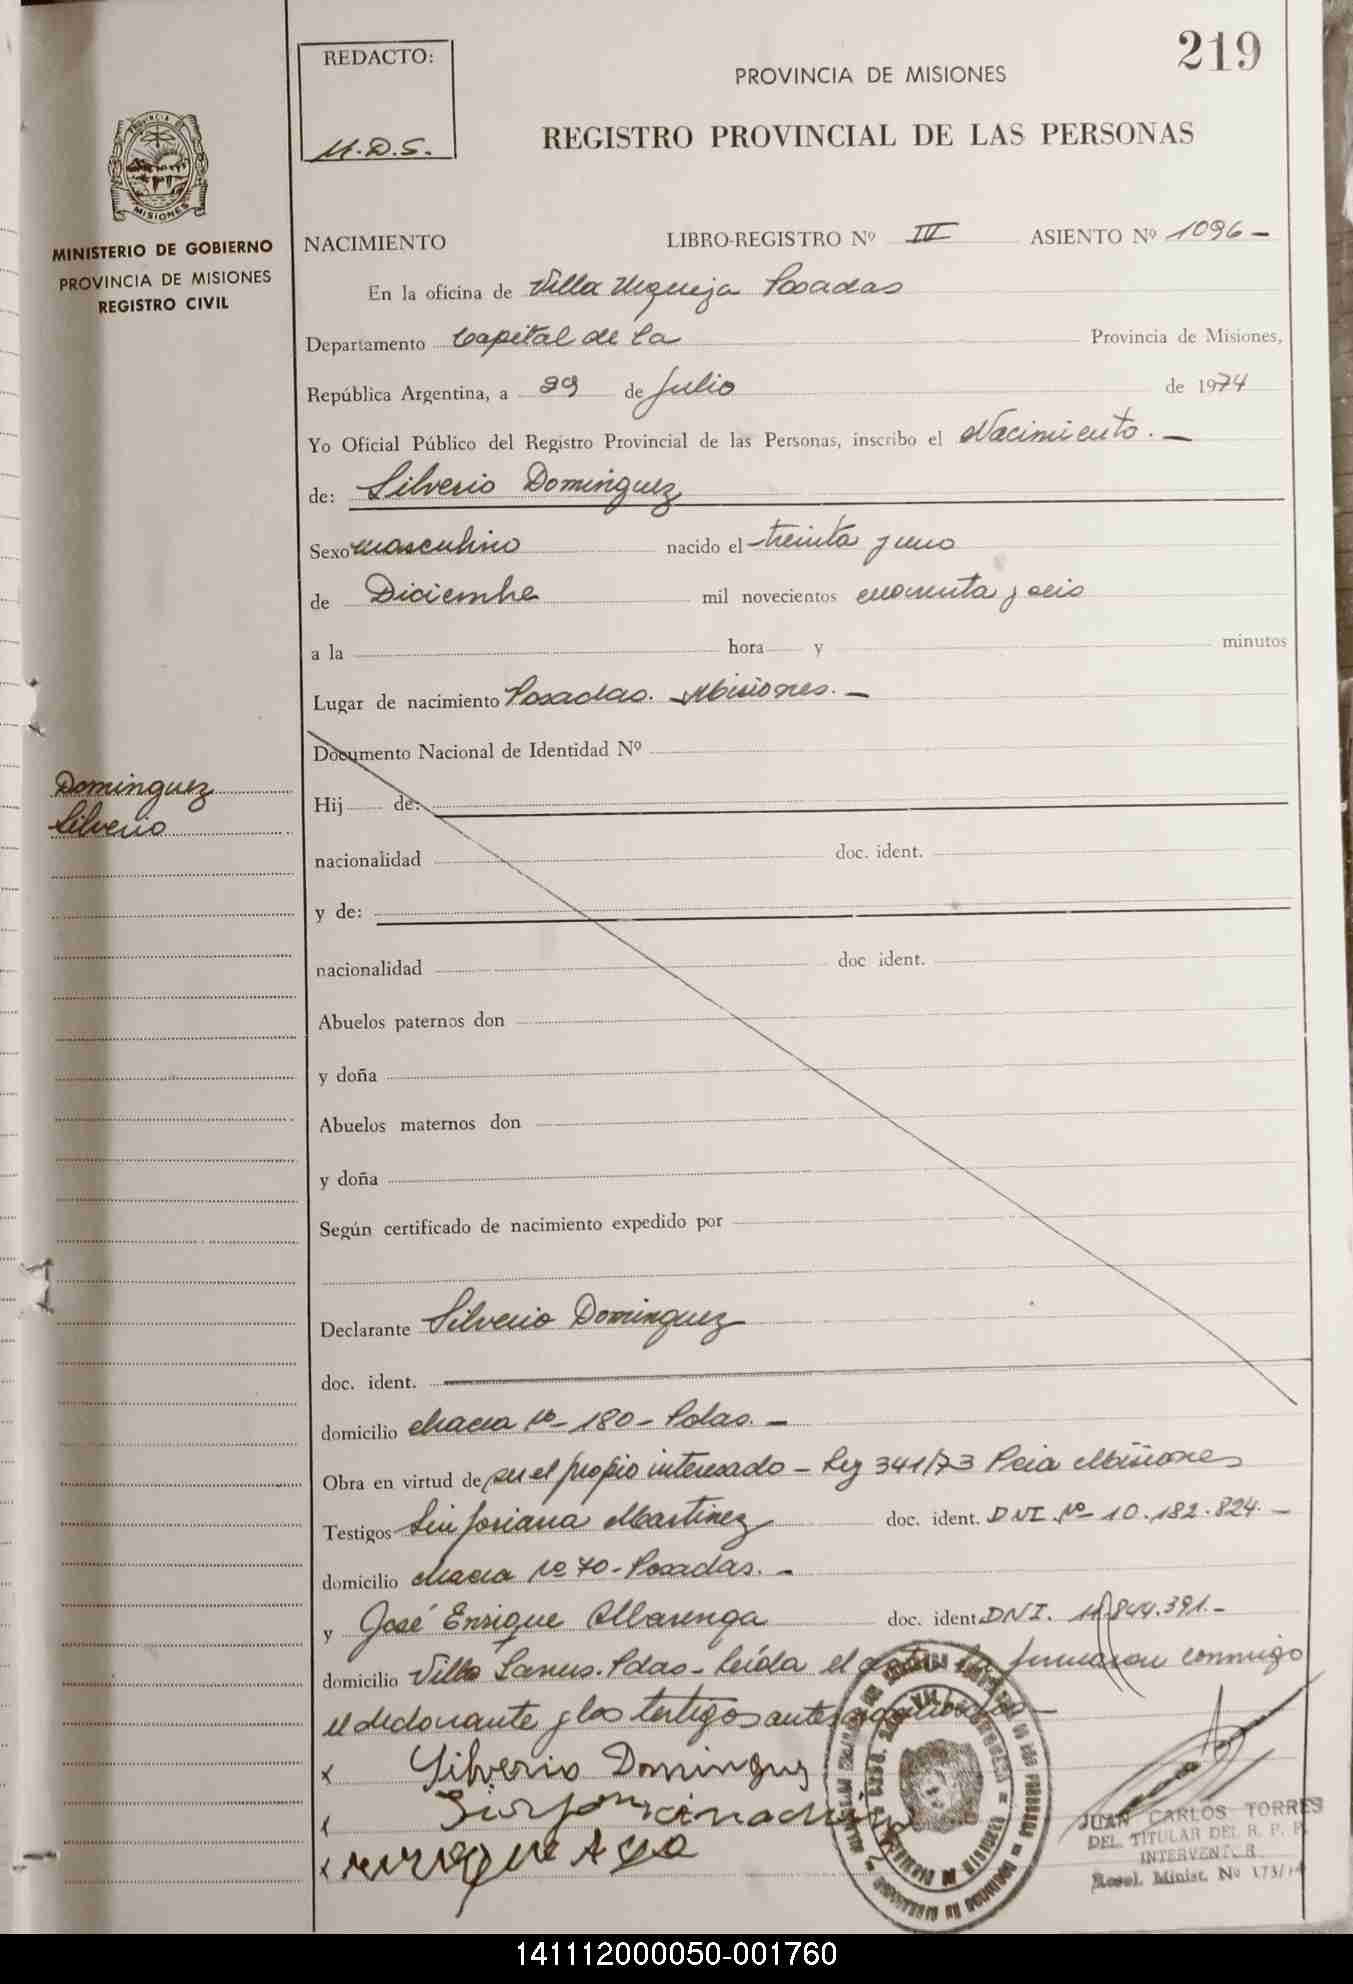 219
REDACTO:
M.D.S.
PROVINCIA DE MISIONES
REGISTRO PROVINCIAL DE LAS PERSONAS
PROVINCIA DE
MISIONES
MINISTERIO DE GOBIERNO
PROVINCIA DE MISIONES
REGISTRO CIVIL
NACIMIENTO LIBRO-REGISTRO Nº IV ASIENTO Nº 1096-
En la oficina de Villa Urquiza Posadas
Departamento Capital de la Provincia de Misiones,
República Argentina, a 29 de Julio de 1974
Yo Oficial Público del Registro Provincial de las Personas, inscribo el Nacimiento.-
de: Silverio Dominguez
Sexo masculino nacido el treinta y uno
de Diciembre mil novecientos cincuenta y seis
a la hora y minutos
Lugar de nacimiento Posadas. Misiones.-
Documento Nacional de Identidad Nº
Dominguez
Silverio
Hij de:
nacionalidad doc. ident.
y de:
nacionalidad doc ident.
Abuelos paternos don
y doña
Abuelos maternos don
y doña
Según certificado de nacimiento expedido por
Declarante Silverio Dominguez
doc. ident.
domicilio chacra Nº- 180- Pdas.-
Obra en virtud de ser el propio interesado - Ley 341/73 Pcia Misiones
Testigos Sinforiana Martinez doc. ident. DNI. Nº- 10.182.824.-
domicilio chacra Nº 70- Posadas.-
y José Enrique doc. ident. DNI. 11.844.391.-
domicilio Villa Lanus. Pdas- Leída el acta la firmaron conmigo
el declarante y los testigos antes
x Silverio Dominguez
x
x
JUAN CARLOS TORRES
DEL. TITULAR DEL R. P. P.
INTERVENTOR
Resol. Minist. Nº 173/74
141112000050-001760